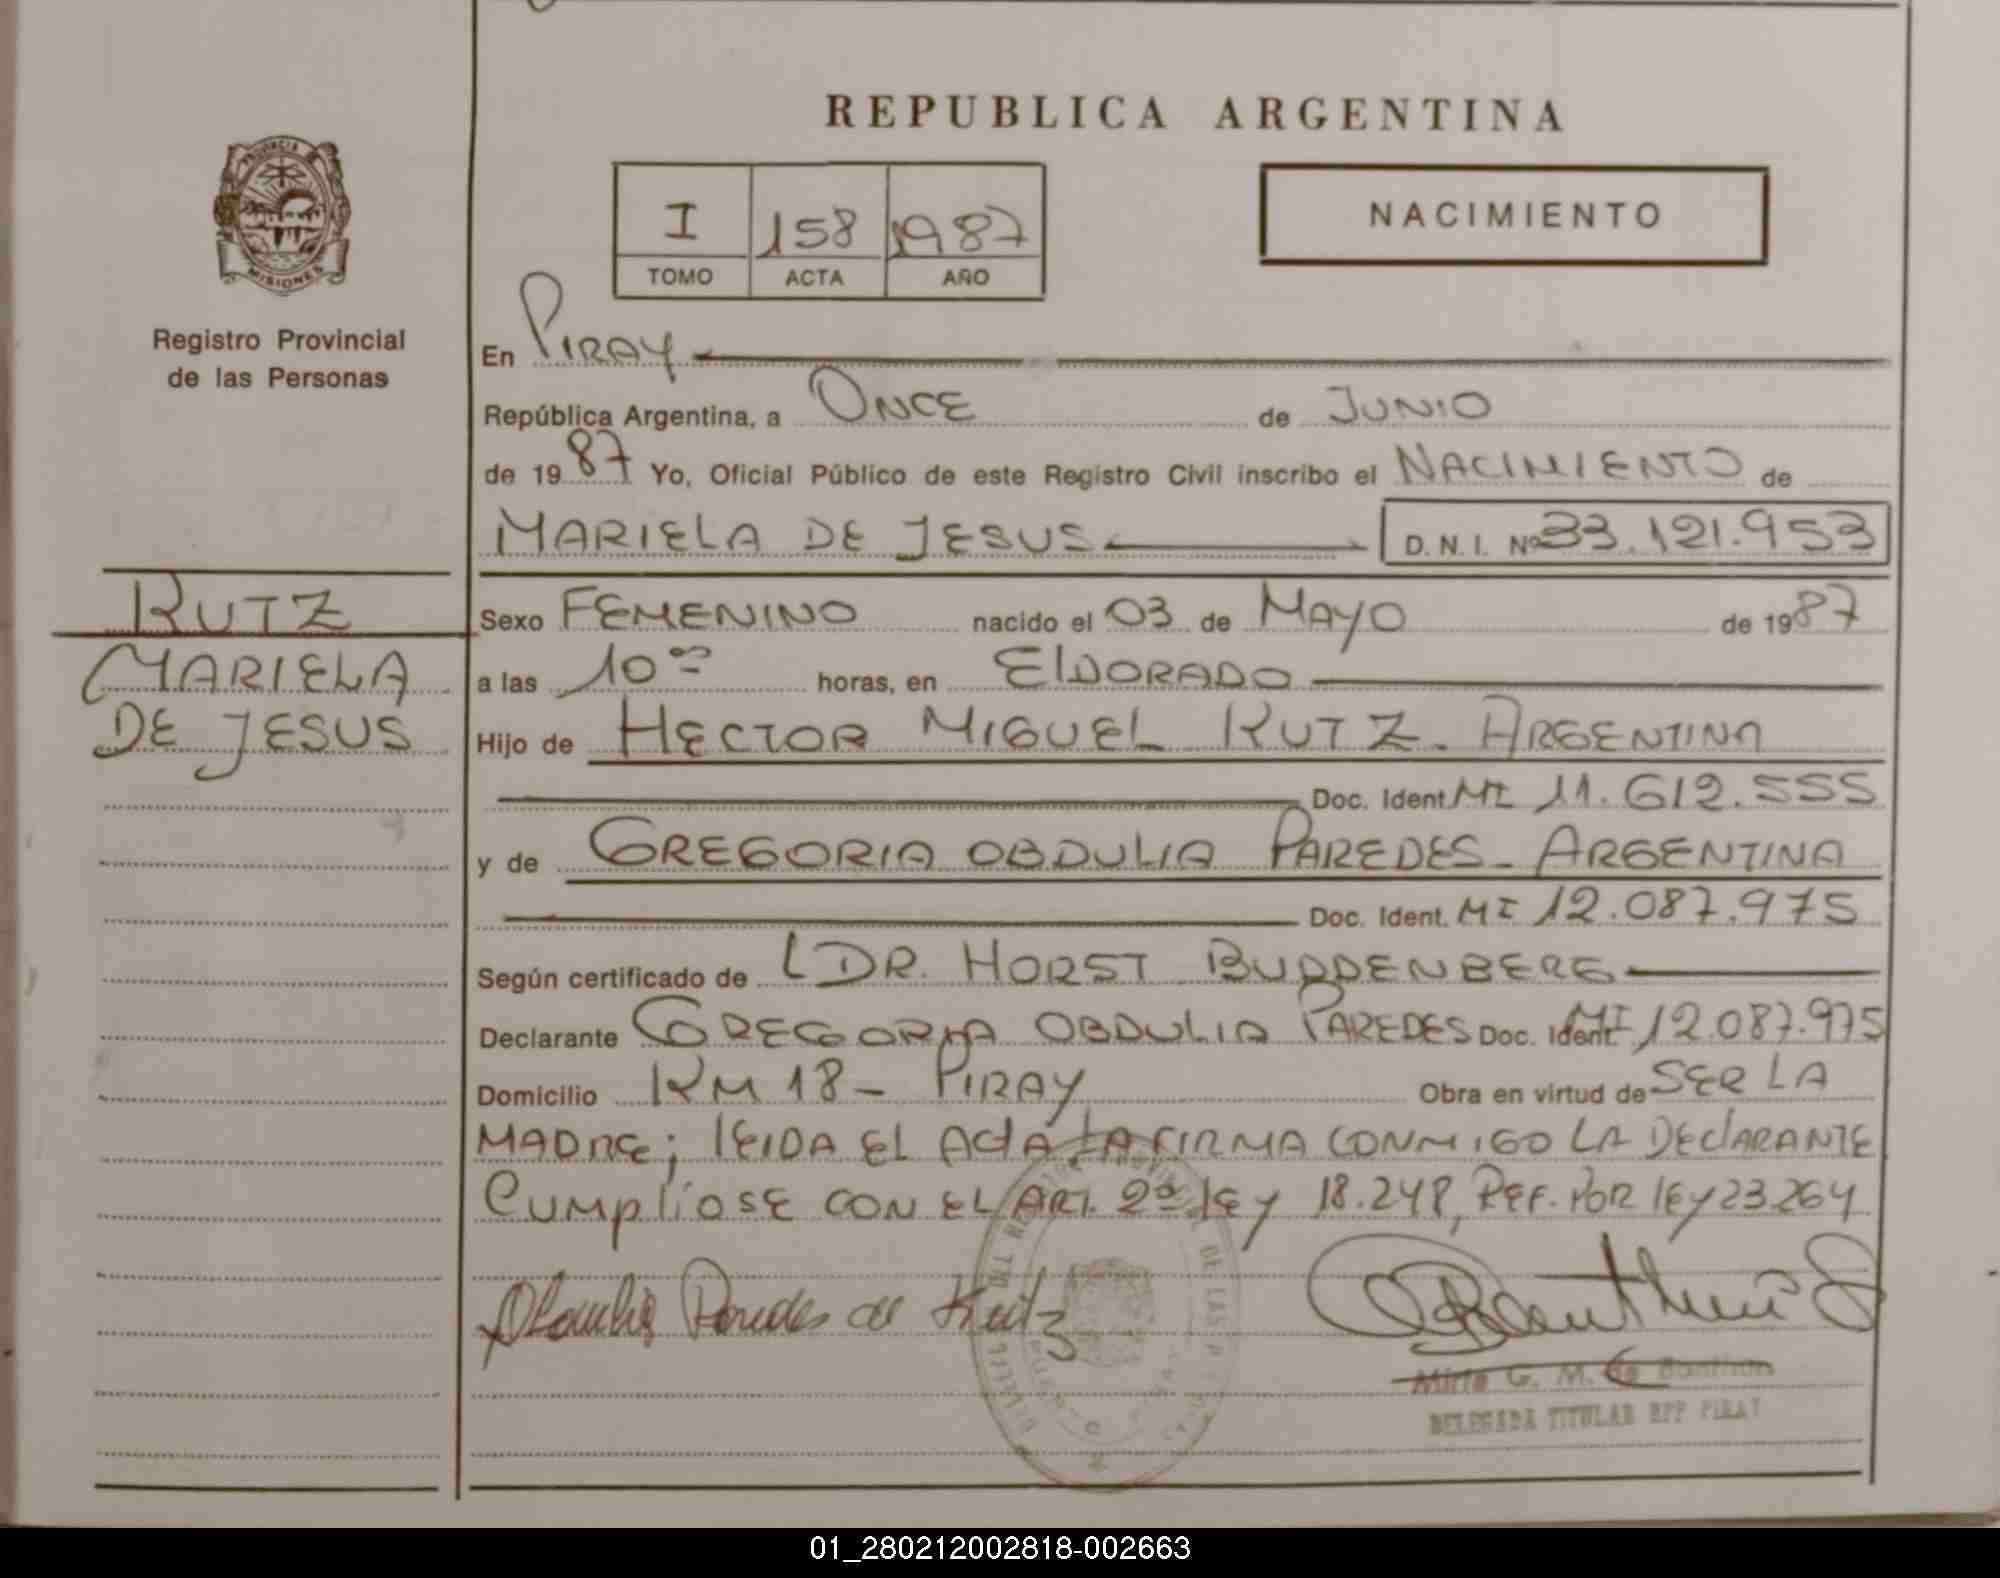 REPUBLICA ARGENTINA
PROVINCIA DE
MISIONES
Registro Provincial
de las Personas
I 158 1987
TOMO ACTA AÑO
NACIMIENTO
En PIRAY
República Argentina, a ONCE de JUNIO
de 1987 Yo, Oficial Público de este Registro Civil inscribo el NACIMIENTO de
MARIELA DE JESUS D.N.I. Nº 33.121.953
KUTZ
MARIELA
DE JESUS
Sexo FEMENINO nacido el 03 de MAYO de 1987
a las 10 ºº horas, en ELDORADO
Hijo de HECTOR MIGUEL KUTZ - ARGENTINA
Doc. Ident. MI 11.612.555
y de GREGORIA OBDULIA PAREDES - ARGENTINA
Doc. Ident. MI 12.087.975
Según certificado de DR. HORST BUDDENBERG
Declarante GREGORIA OBDULIA PAREDES Doc. Ident. MI 12.087.975
Domicilio KM 18 - PIRAY Obra en virtud de SER LA
MADRE; lEIDA EL ActA LA FIRMA CONMIGO LA DEClARANTE
CUMplIOSE CON EL ART. 2º lEy 18.248, REF. POR lEy 23.264
Paredes de Kutz
Mirta G. M. de
DELEGADA TITULAR RPP PIRAY
01_280212002818-002663